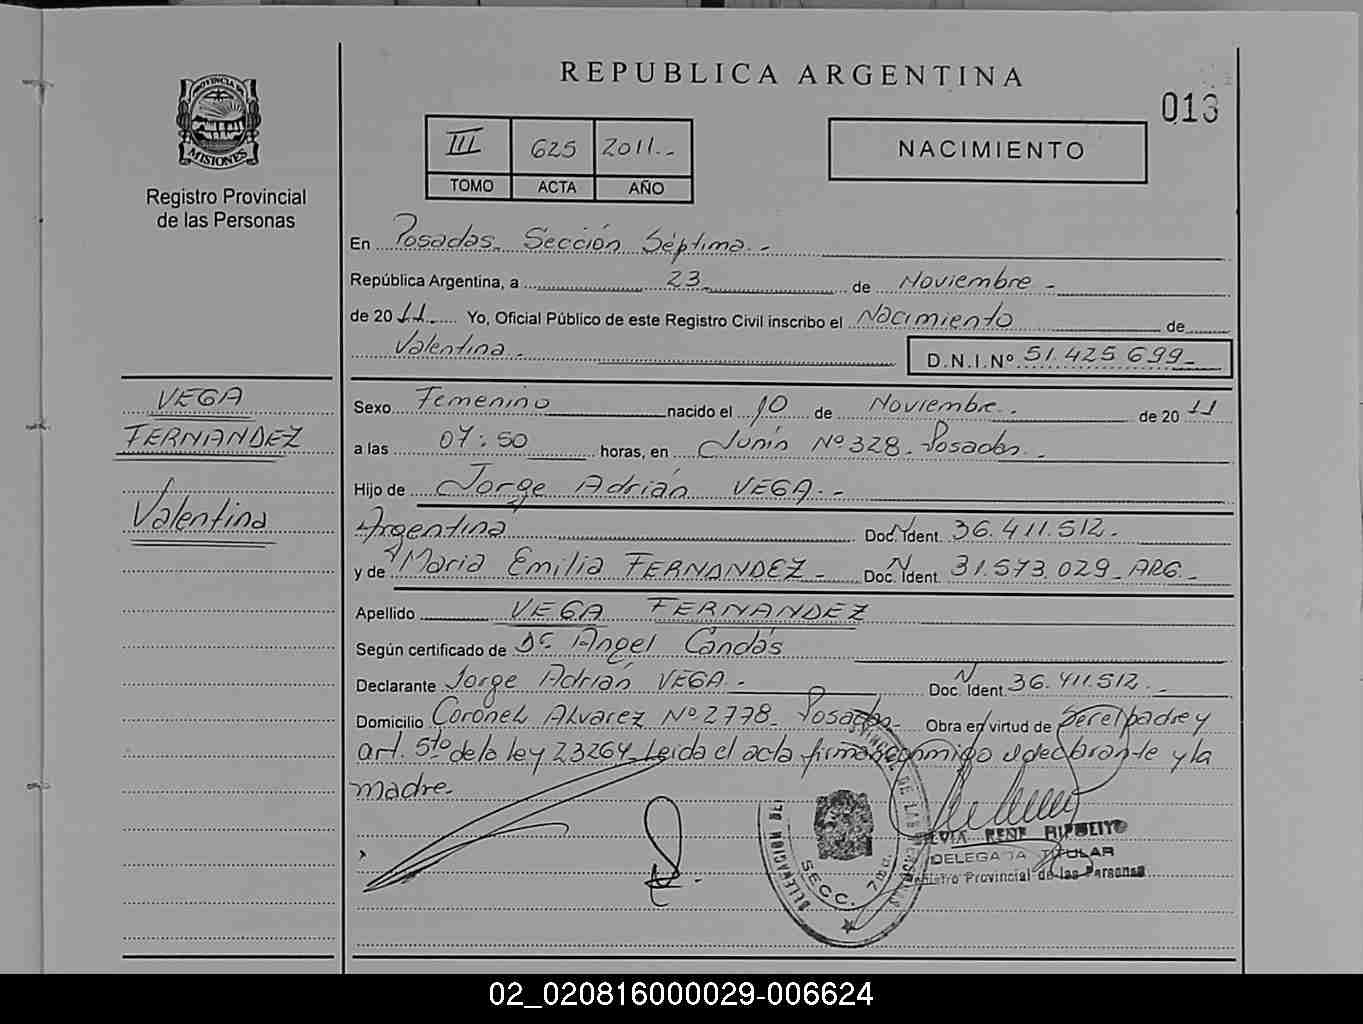 REPUBLICA ARGENTINA
013
PROVINCIA DE
MISIONES
Registro Provincial
de las Personas
III 625 2011.-
TOMO ACTA AÑO
NACIMIENTO
En Posadas. Sección Séptima.-
República Argentina, a 23 de Noviembre -
de 2011 Yo, Oficial Público de este Registro Civil inscribo el Nacimiento de
Valentina. D.N.I.Nº 51.425.699-
VEGA
FERNANDEZ
Valentina
Sexo Femenino nacido el 10 de Noviembre.- de 2011
a las 07:50 horas, en Junín Nº 328. Posadas.-
Hijo de Jorge Adrián VEGA.-
Argentina Doc. Ident. 36.411.512.-
y de Maria Emilia FERNANDEZ - Doc. Ident. 31.573.029- ARG.-
Apellido VEGA FERNANDEZ
Según certificado de Dr. Angel Candás
Declarante Jorge Adrián VEGA.- Doc. Ident. 36.411.512.-
Domicilio Coronel Alvarez Nº 2778- Posadas- Obra en virtud de Ser el padre y
art. 5to de la ley 23264 Leida el acta firman conmigo el declarante y la
madre.
SECC. 7ma.
RENE HIPOLITO
DELEGADA TITULAR
Registro Provincial de las Personas
02_020816000029-006624